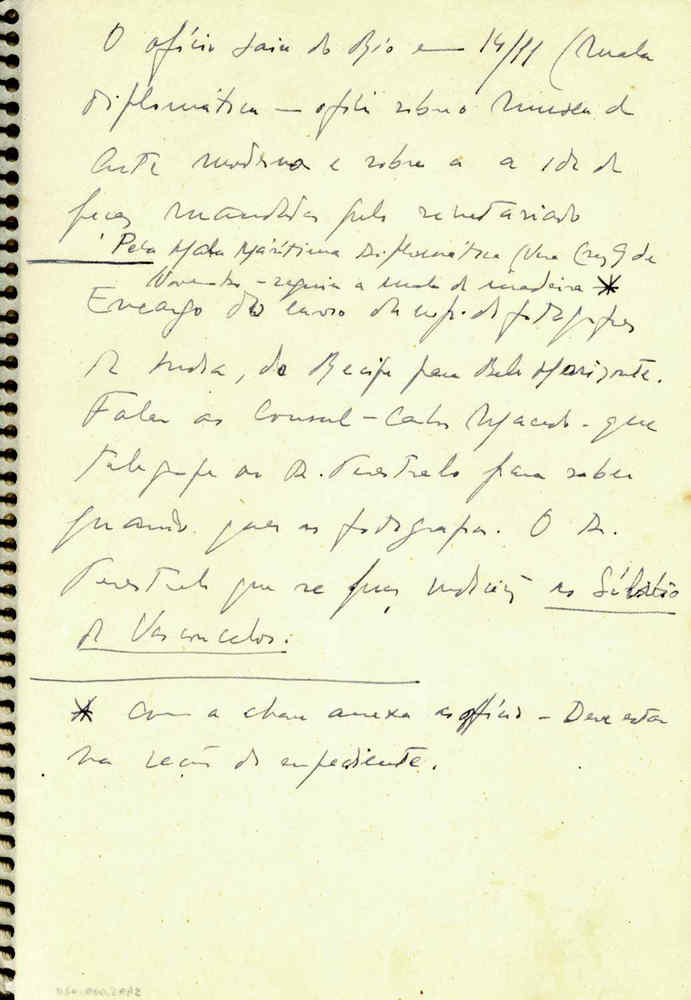 O ofício saiu do Rio em 14/11 (mala
diplomática — ofício sobre o Museu de
Arte moderna e sobre a
peças mandadas pelo secretariado
Pela Mala Marítima Diplomática (Vera Cruz 9 de
Novembro - seguiu a mala de madeira *
Encargo do envio da exp. de fotografias
de , do Recife para Belo Horizonte.
Falar ao Consul - Carlos Macedo - que
telegrafe ao Dr. Perestrelo para saber
quando as fotografias. O Dr.
Perestrelo que se ao Sílvio
de Vasconcelos.
* Com a chave anexa ao ofício - Deve estar
na secção de expediente.